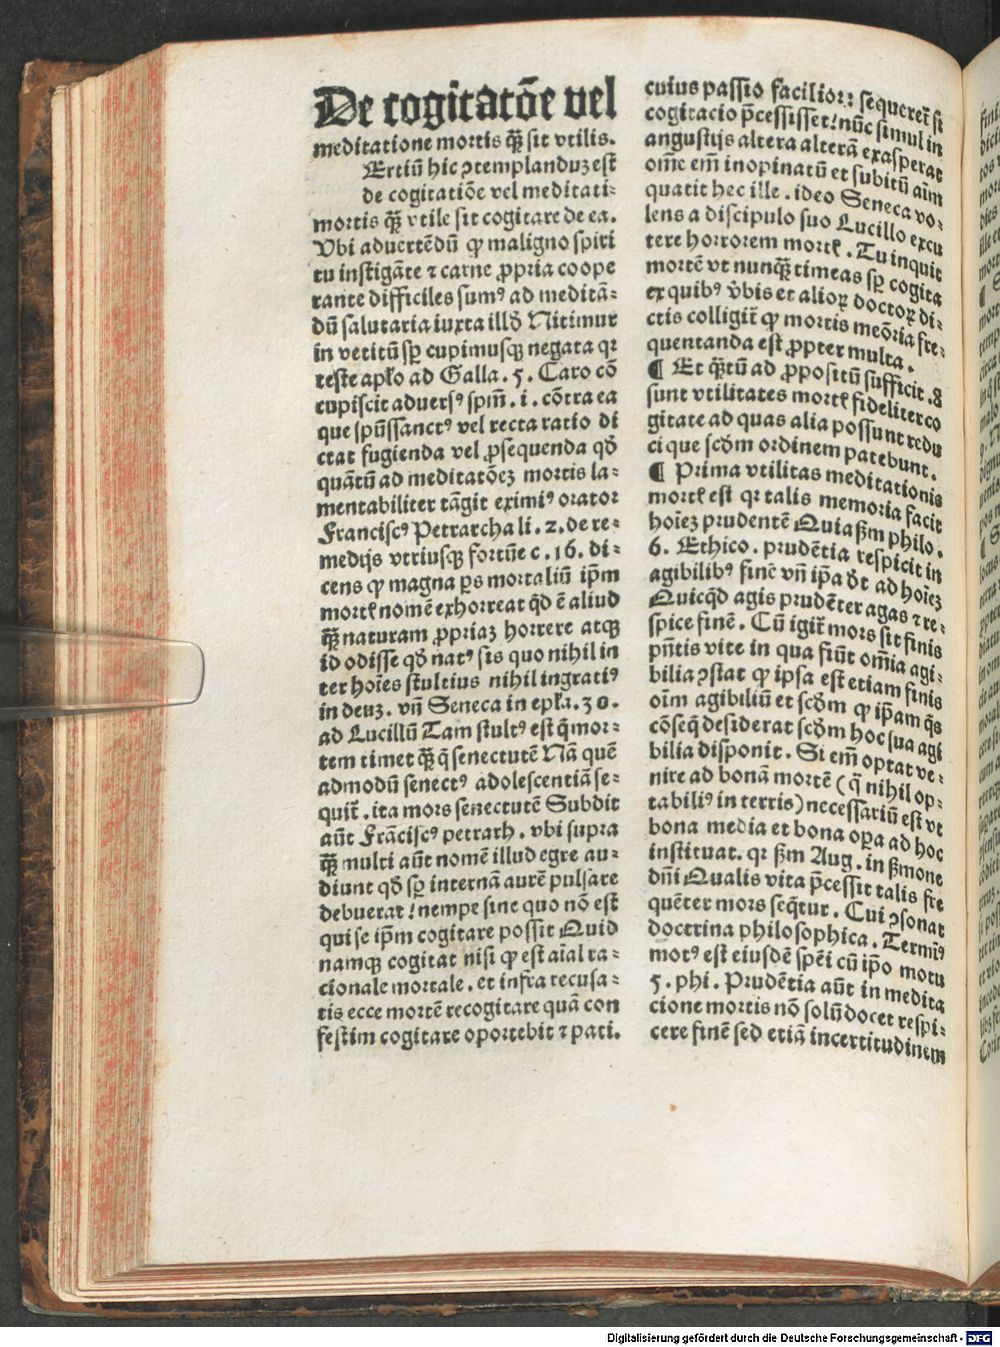 De cogitatōe vel
meditatione mortis qȝ̄ sit vtilis.
Ertiū hic ꝯtemplanduȝ est
de cogitatiōe vel meditati⸗
mortis qȝ̄ vtile sit cogitare de ea.
Vbi aduertēdū ꝙ maligno spiri
tu instigāte ⁊ carne ꝓpria coope
rante difficiles sumꝰ ad meditā⸗
dū salutaria iuxta illđ Nitimur
in vetitū sꝑ cupimusqȝ negata qꝛ
teste apl̓o ad Galla. 5. Caro cō
cupiscit aduersꝰ spm̄. i. cōtra ea
que spūssanctꝰ vel recta ratio di
ctat fugienda vel ꝓsequenda qđ
quātū ad meditatōeȝ mortis la⸗
mentabiliter tāgit eximiꝰ orator
Franciscꝰ Petrarcha li. 2. de re⸗
medijs vtriusqȝ fortūe c. 16. di⸗
cens ꝙ magna ꝑs mortaliū ip̄m
mortꝭ nomē exhorreat qđ ē aliud
qȝ̄ naturam ꝓpriaȝ horrere atqȝ
id odisse qđ natꝰ sis quo nihil in
ter hoīes stultius nihil ingratiꝰ
in deuȝ. vn̄ Seneca in epl̓a. 30.
ad Lucillū Tam stultꝰ est q̄ mor⸗
tem timet qȝ̄ q̄ senectutē Nā quē
admodū senectꝰ adolescentiā se⸗
quit̄. ita mors senectutē Subdit
aūt Frāciscꝰ petrarh. vbi supra
qȝ̄ multi aūt nomē illud egre au⸗
diunt qđ sꝑ internā aurē pulsare
debuerat / nempe sine quo nō est
qui se ip̄m cogitare possit Quid
namqȝ cogitat nisi ꝙ est aīal ra⸗
cionale mortale. et infra recusa⸗
tis ecce mortē recogitare quā con
festim cogitare oportebit ⁊ pati.
cuius passio facilior: sequeret̄ si
cogitacio p̄cessisset / nūc simul in
angustijs altera alterā exasperat
om̄e em̄ inopinatū et subitū aīm
quatit hec ille. ideo Seneca vo⸗
lens a discipulo suo Lucillo excu
tere horrorem mortꝭ. Tu inquit
mortē vt nunqȝ̄ timeas sꝑ cogita
ex quibꝰ v̄bis et alioꝝ doctoꝝ di⸗
ctis colligit̄ ꝙ mortis meōria fre⸗
quentanda est ꝓpter multa.
¶ Et qȝ̄tū ad ꝓpositū sufficit. 8
sunt vtilitates mortꝭ fideliter co
gitate ad quas alia possunt redu
ci que scđm ordinem patebunt.
¶ Prima vtilitas meditationis
mortꝭ est qꝛ talis memoria facit
hoīeȝ prudentē Quia ẜm philo.
6. Ethico. prudētia respicit in
agibilibꝰ finē vn̄ ip̄a đt ad hoīeȝ
Quicqđ agis prudēter agas ⁊ re⸗
spice finē. Cū igit̄ mors sit finis
pn̄tis vite in qua fiūt om̄ia agi⸗
bilia ꝯstat ꝙ ipsa est etiam finis
oīm agibiliū et scđm ꝙ ip̄am q̄s
cōseq̄ desiderat scđm hoc sua agi
bilia disponit. Si em̄ optat ve⸗
nire ad bonā mortē (q̄ nihil op⸗
tabiliꝰ in terris) necessariū est vt
bona media et bona oꝑa ad hoc
instituat. qꝛ ẜm Aug. in ẜmone
dn̄i Qualis vita p̄cessit talis fre
quēter mors seq̄tur. Cui ꝯsonat
doctrina philosophica. Terminꝰ
motꝰ est eiusdē spēi cū ip̄o motu
5. phi. Prudētia aūt in medita
cione mortis nō solū docet respi⸗
cere finē sed etiā incertitudinem
Digitalisierung gefördert durch die Deutsche Forschungsgemeinschaft - DFG